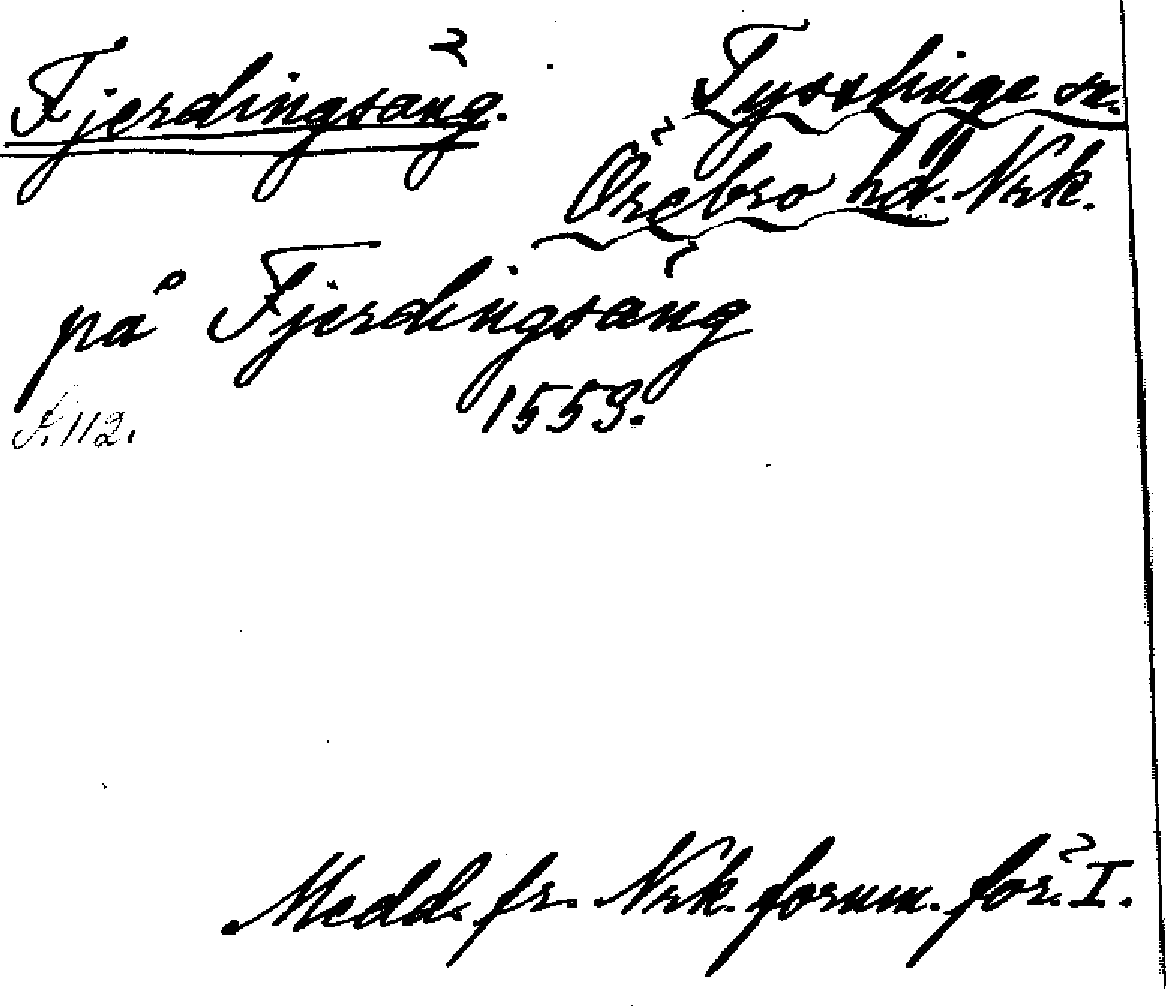 Fjerdingsäng. Tysslinge sn.
Örebro hd. Nrk.
på Fjerdingsäng
1559.
S. 112.
Medd. fr. Nrk. fornm. för. I.